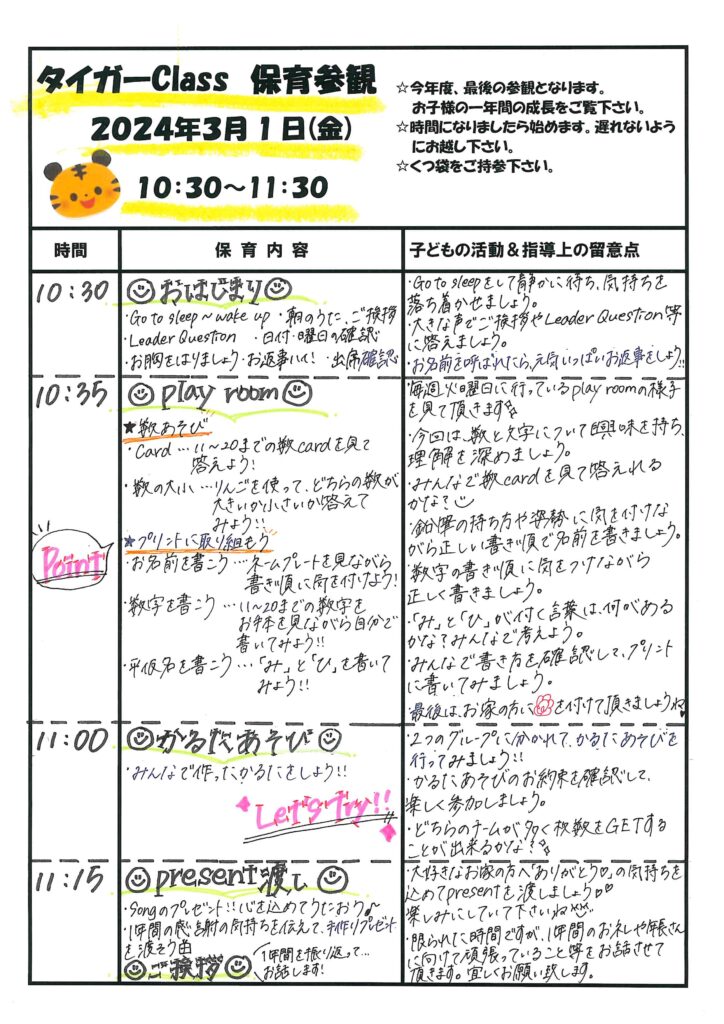 タイガーClass 保育参観
2024年3月1日(金)
10:30～11:30
☆今年度、最後の参観となります。
お子様の一年間の成長をご覧下さい。
☆時間になりましたら始めます。遅れないよう
にお越し下さい。
☆くつ袋をご持参下さい。
時間
保育内容
子どもの活動＆指導上の留意点
10:30
おはじまり
・Go to sleep～wake up ・朝のうた、ご挨拶
・Leader Question ・日付・曜日の確認
・お胸をはりましょう・お返事ハイ! ・出席確認
・Go to sleepをして静かに待ち、気持ちを
落ち着かせましょう。
・大きな声でご挨拶やLeader Question等
に答えましょう。
・お名前を呼ばれたら、元気いっぱいお返事をしよう!!
10:35
play room
★数あそび
・Card…11～20までの数cardを見て
答えよう!
・数の大小…りんごを使って、どちらの数が
大きいか小さいか答えて
みよう!!
★プリントに取り組もう
Point
・お名前を書こう…ネームプレートを見ながら
書き順に気を付けよう!
・数字を書こう…11～20までの数字を
お手本を見ながら自分で
書いてみよう!!
・平仮名を書こう…「み」と「ひ」を書いて
みよう!!
・毎週火曜日に行っているplay roomの様子
を見て頂きます
・今回は、数と文字について興味を持ち、
理解を深めましょう。
・みんなで数cardを見て答えれる
かな?
・鉛筆の持ち方や姿勢に気を付けな
がら正しい書き順で名前を書きましょう。
・数字の書き順に気をつけながら
正しく書きましょう。
・「み」と「ひ」が付く言葉は、何がある
かな?みんなで考えよう。
・みんなで書き方を確認して、プリント
に書いてみましょう。
最後は、お家の方に を付けて頂きましょうね
11:00
かるたあそび
・みんなで作ったかるたをしよう!!
Let's Try!!
・2つのグループに分かれて、かるたあそびを
行ってみましょう!!
・かるたあそびのお約束を確認して、
楽しく参加しましょう。
・どちらのチームが多く枚数をGETする
ことが出来るかな!?
11:15
present渡し
・Songのプレゼント!!心を込めてうたおう♪
・1年間の感謝の気持ちを伝えて、手作りプレゼント
を渡そう
ご挨拶
1年間を振り返って…
お話します!
・大好きなお家の方へ「ありがとう♡」の気持ちを
込めてpresentを渡しましょう♡♡
楽しみにしていて下さいね
・限られた時間ですが、1年間のお礼や年長さん
に向けて頑張っていること等をお話させて
頂きます。宜しくお願い致します。